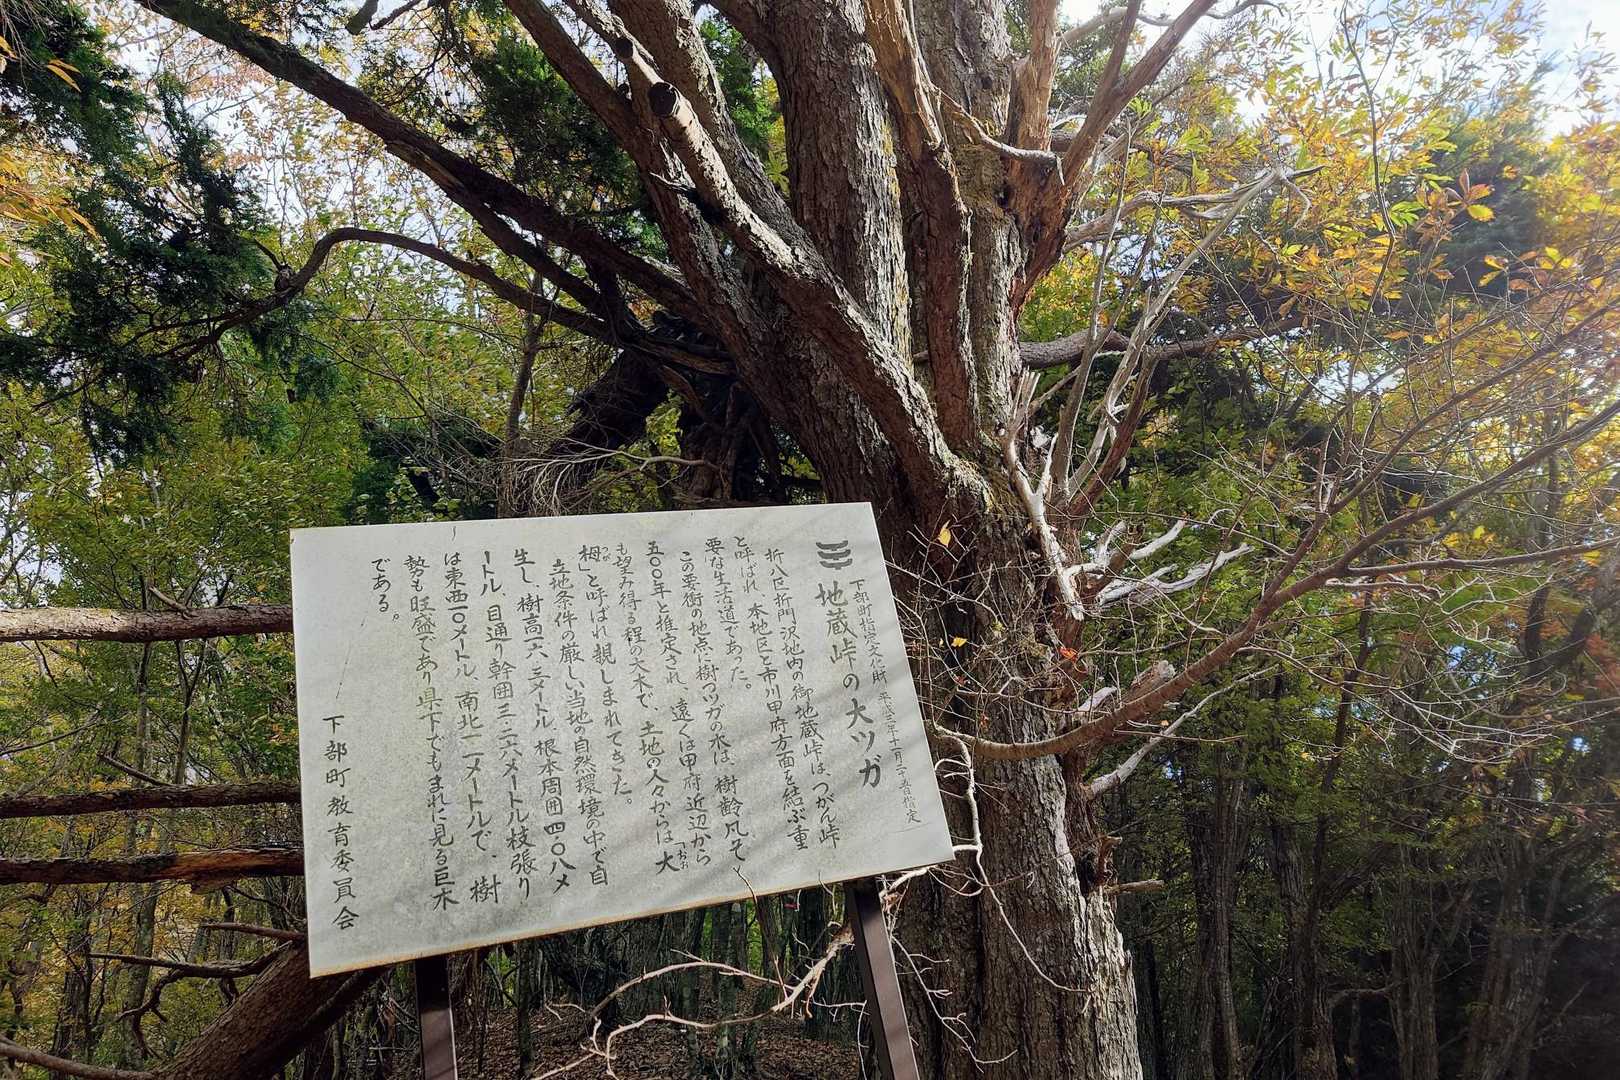 下部町指定文化財 平成三年十一月二十五日指定
三 地蔵峠の大ツガ
折八区折門沢地内の御地蔵峠は、つがん峠
と呼ばれ、本地区と市川甲府方面を結ぶ重
要な生活道であった。
この要衝の地点に樹つツガの木は、樹齢凡そ
五〇〇年と推定され 遠くは甲府近辺から
も望み得る程の大木で、土地の人々からは「大
栂」と呼ばれ親しまれてきた。
立地条件の厳しい当地の自然環境の中で自
生し、樹高六、三メートル 根本周囲四、〇八メ
ートル、目通り幹囲三・二六メートル枝張り
は東西一〇メートル 南北一二メートルで、樹
勢も旺盛であり県下でもまれに見る巨木
である。
下部町教育委員会